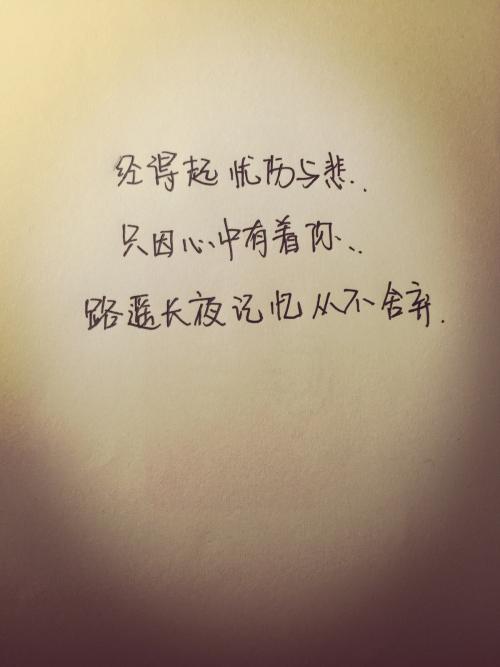 经得起忧伤与悲..
只因心中有着你...
路遥长夜记忆从不舍弃.